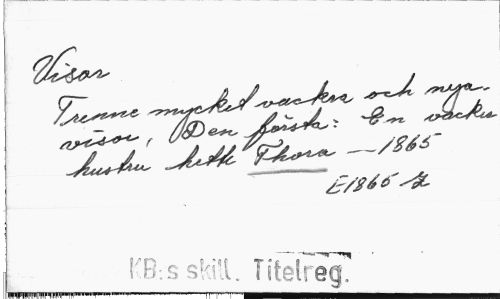 Visor
Trenne mycket vackra och nya
visor, Den första: En vacker
hustru hette Thora — 1865
E1865 g
KB:s skill. Titelreg.